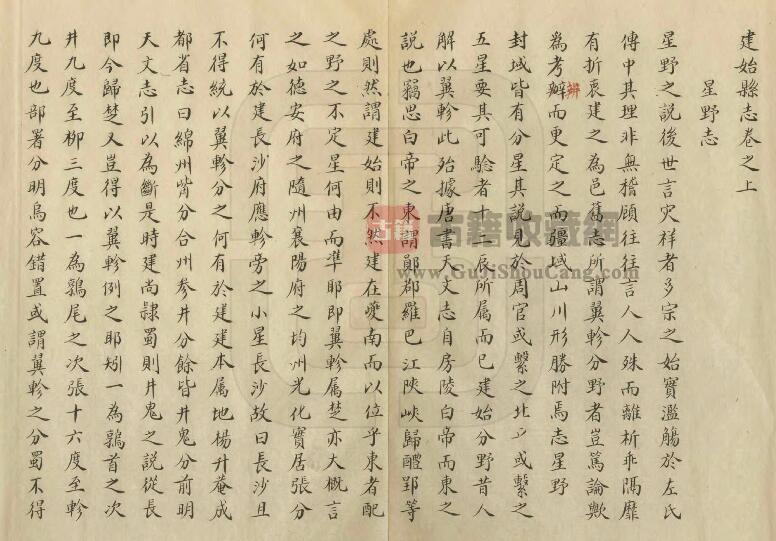 建始縣志卷之上
星野志
星野之説後世言灾祥者多宗之始實濫觴於左氏
傳中其理非無稽顧往往言人人殊而離析乖隔靡
有折衷建之為邑舊志所謂翼軫分野者豈篤論歟
為考辧辨而更定之而疆域山川形勝附焉志星野
封域皆有分星其説見於周官或繫之北斗或繫之
五星要其可騐者十二辰所属而已建始分野昔人
解以翼軫此殆據唐書天文志自房陵白帝而東之
説也竊思白帝之東謂鄖郡羅巴江陝峽歸醴郢等
處則然謂建始則不然建在夔南而以位乎東者配
之野之不定星何由而凖耶即翼軫属楚亦大概言
之如德安府之隨州襄陽府之均州光化實居張分
何有於建長沙府應軫旁之小星長沙故曰長沙且
不得統以翼軫分之何有於建建本属地楊升菴成
都省志曰綿州觜分合州參井分餘皆井鬼分前明
天文志引以為斷是時建尚隷蜀則井鬼之説從長
即今歸楚又豈得以翼軫例之耶矧一為鶉首之次
井九度至柳三度也一為鶉尾之次張十六度至軫
九度也部署分明烏容錯置或謂翼軫之分蜀不得
古籍
古籍收藏網
www.GuJiShouCang.com